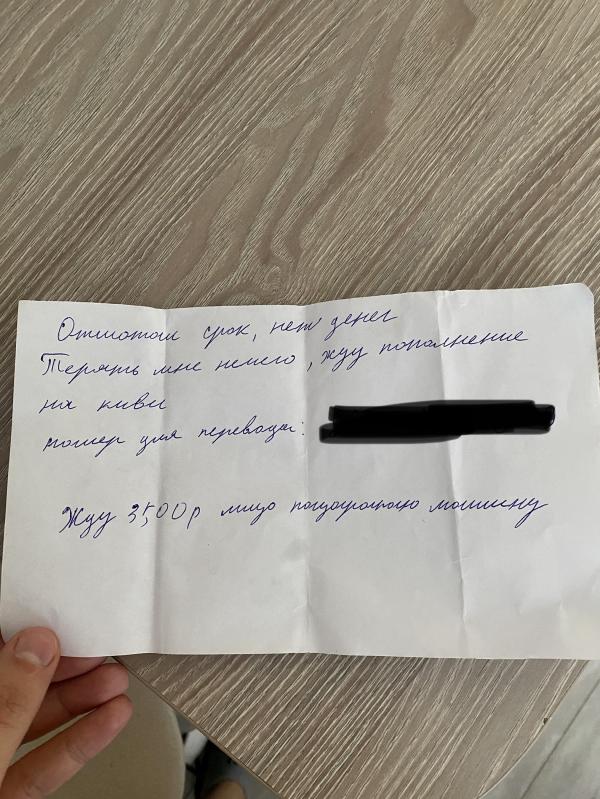 Отмотал срок, нет денег
Терять мне нечего, жду пополнение
на киви
номер для перевода:
Жду 3500р поцарапаю машину